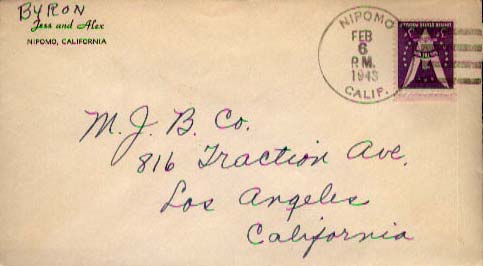 BYRON
Jess and Alex
NIPOMO, CALIFORNIA
NIPOMO
FEB
6
P.M.
1943
CALIF.
M. J. B. Co.
816 Traction Ave.
Los Angeles
California